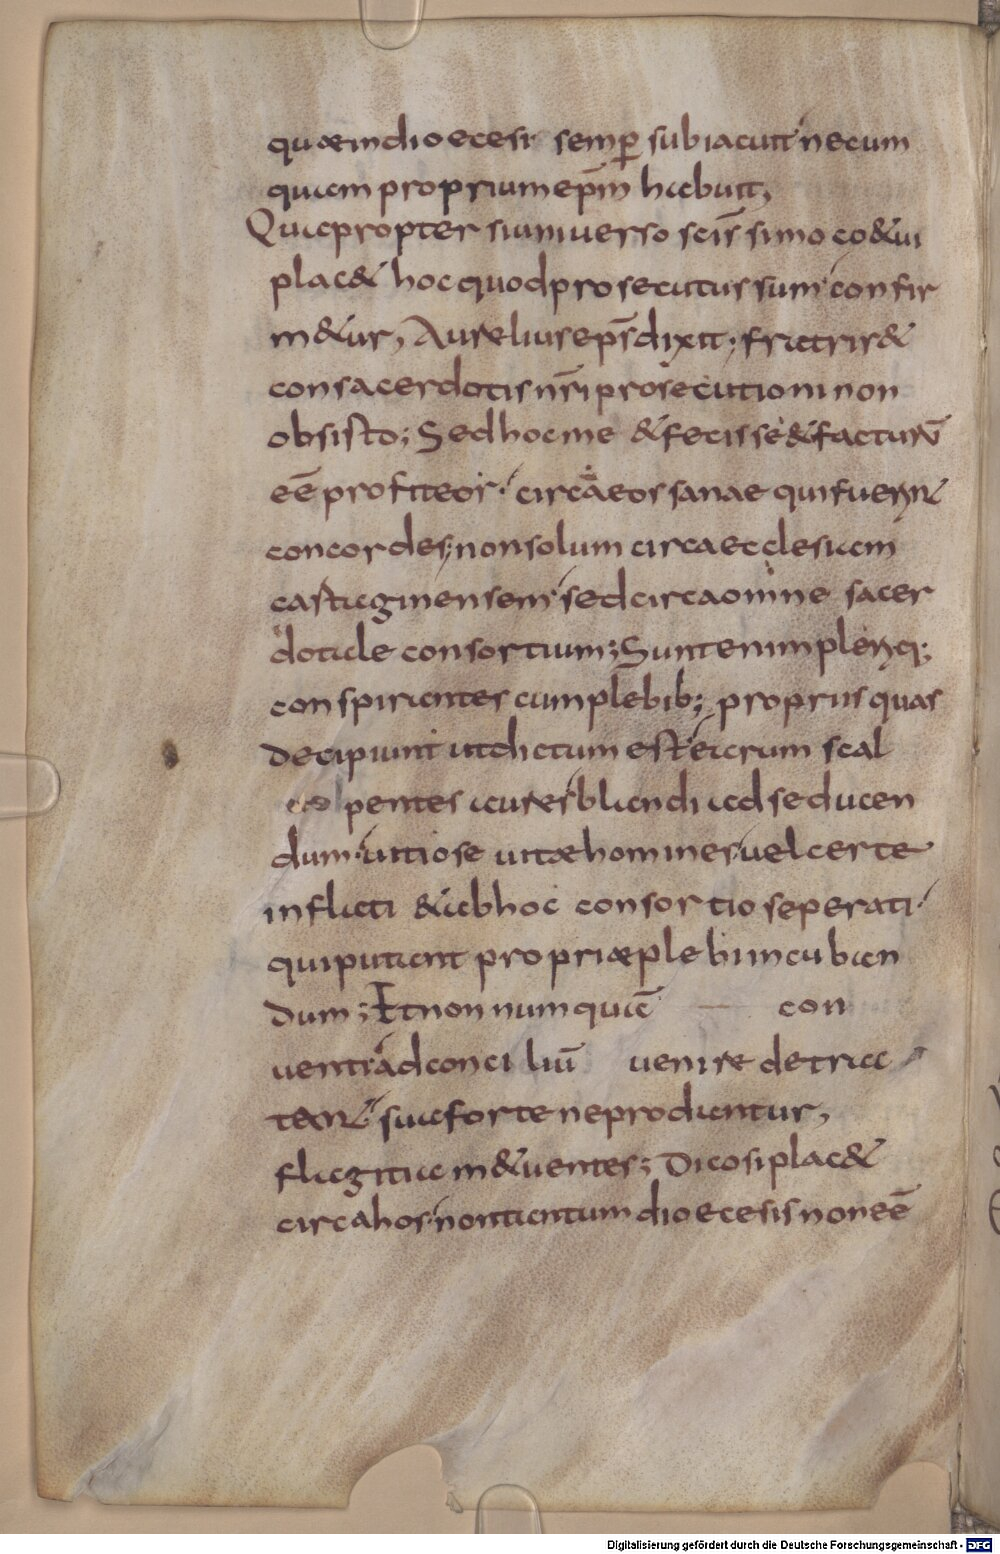 quae indioecesi semp̄ subiacuit necum
quam proprium ep̄m habuit,
Quapropter siuniuerso sc̄issimo coetui
placet hoc quod prosecutus sum confir
metur, Aurelius ep̄s dixit; fratris et
consacerdotis nr̄i prosecutioni non
obsisto; Sed hoc me et fecisse et facturū
eē profiteor; circa eos sanae qui fuerint
concordes; non solum circa ecclesiam
castaginensem sed circa omne sacer
dotale consortium; Sunt enim pleriq;
conspirantes cum plebib; propriis quas
decipiunt ut dictum est earum scal
pentes aures blandi ad seducen
dum uitiose uitae homines uel certe
inflati et ab hoc consortio seperati
qui putant propriae plebi incuban
dum; Et non numquā con
uenti ad conciliū uenire detrac
tent sua forte ne prodantur,
flagitia metuentes; Dico si placet
circa hos non tantum dioecesis non eē
Digitalisierung gefördert durch die Deutsche Forschungsgemeinschaft - DFG